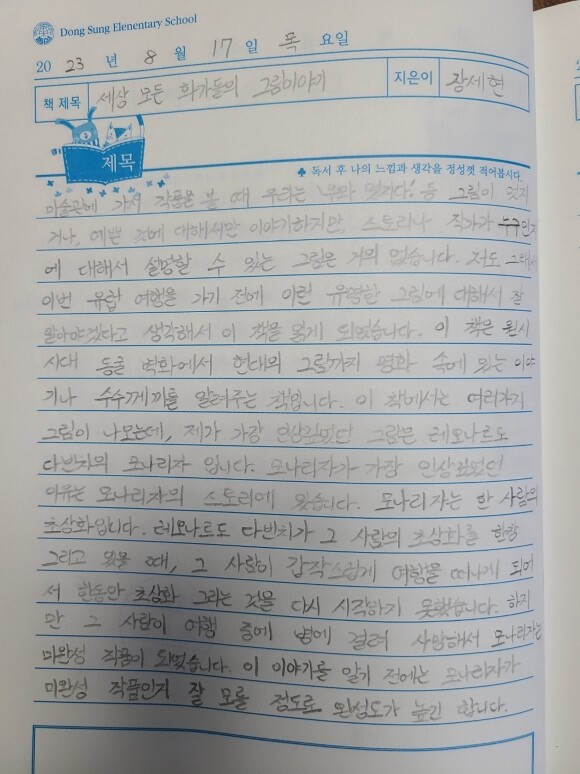 Dong Sung Elementary School
20 23 년 8 월 17 일 목 요일
책 제목 세상 모든 화가들의 그림이야기 지은이 장세현
제목
♣ 독서 후 나의 느낌과 생각을 정성껏 적어봅시다.
미술관에 가서 작품을 볼 때 우리는 '우와 멋지다!' 등 그림이 멋지
거나, 예쁜 것에 대해서만 이야기하지만, 스토리나 작가가 누구인지
에 대해서 설명할 수 있는 그림은 거의 없습니다. 저도 그래서
이번 유럽 여행을 가기 전에 이런 유명한 그림에 대해서 잘
알아야겠다고 생각해서 이 책을 읽게 되었습니다. 이 책은 원시
시대 동굴 벽화에서 현대의 그림까지 명화 속에 있는 이야
기나 수수께끼를 알려주는 책입니다. 이 책에서는 여러가지
그림이 나오는데, 제가 가장 인상깊었던 그림은 레오나르도
다빈치의 모나리자 입니다. 모나리자가 가장 인상깊었던
이유는 모나리자의 스토리에 있습니다. 모나리자는 한 사람의
초상화입니다. 레오나르도 다빈치가 그 사람의 초상화를 한창
그리고 있을 때, 그 사람이 갑작스럽게 여행을 떠나게 되어
서 한동안 초상화 그리는 것을 다시 시작하기 못했습니다. 하지
만 그 사람이 여행 중에 병에 걸려 사망해서 모나리자는
미완성 작품이 되었습니다. 이 이야기를 알기 전에는 모나리자가
미완성 작품인지 잘 모를 정도로 완성도가 높긴 합니다.